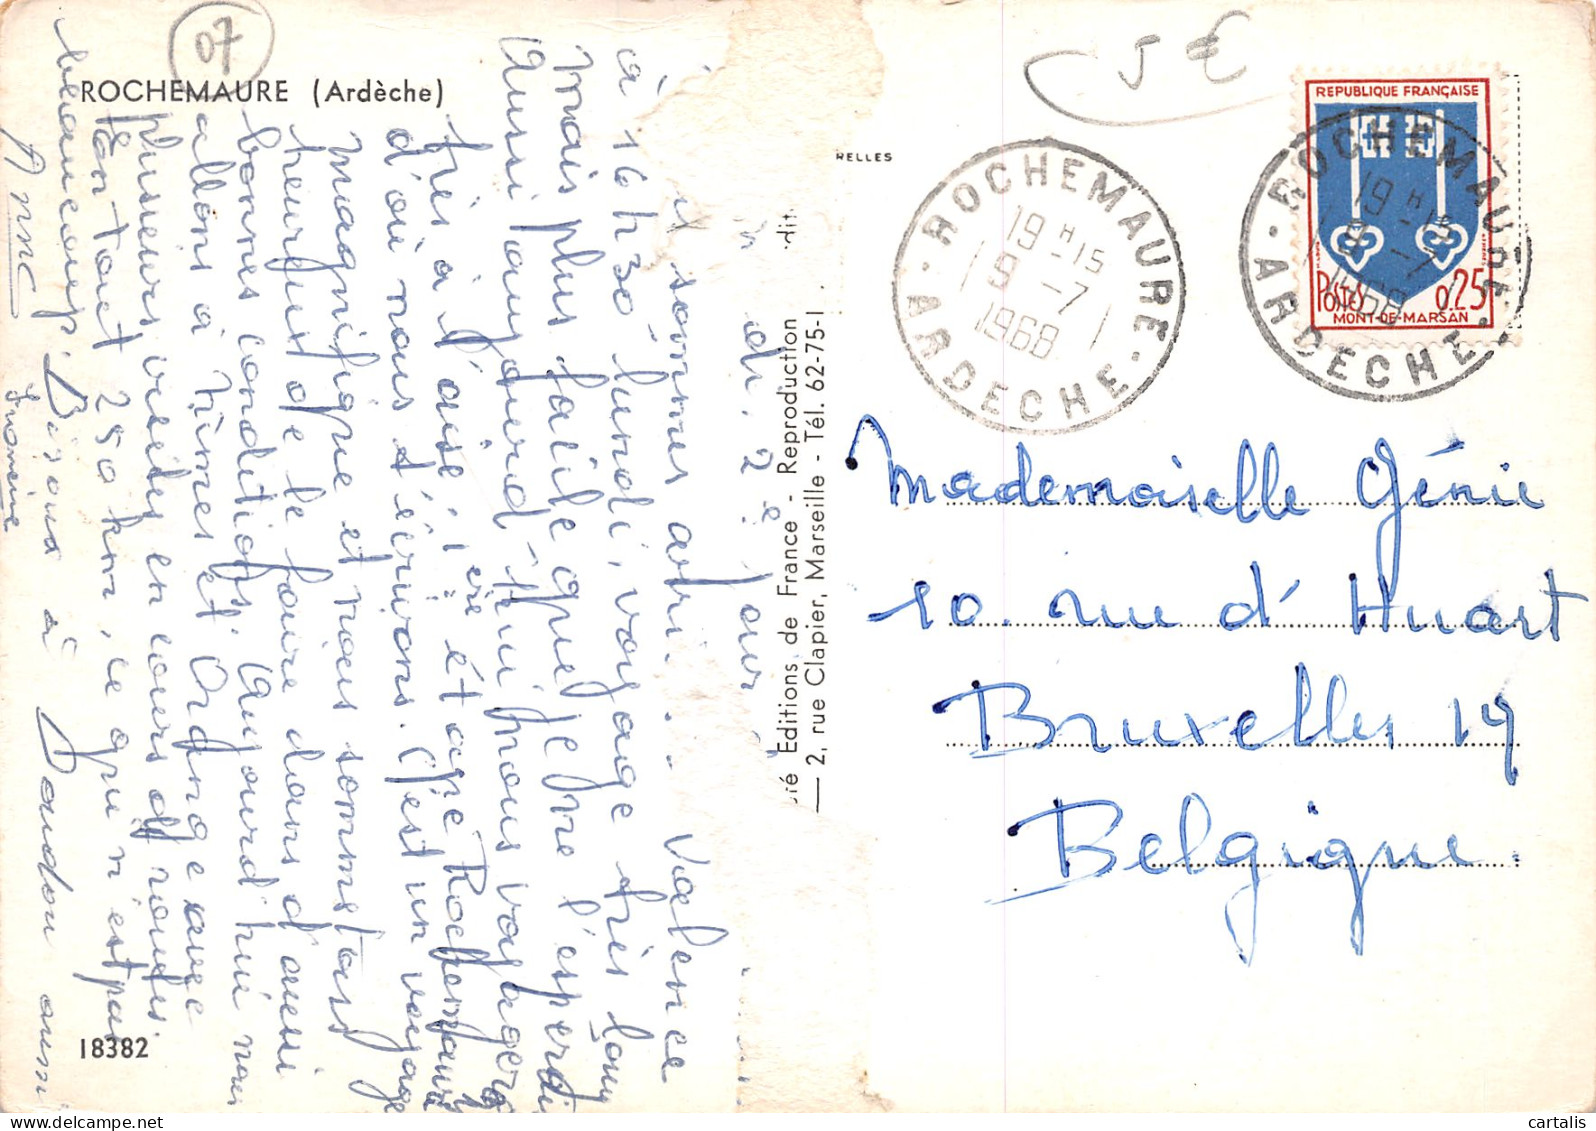 07
ROCHEMAURE (Ardèche)
di. 2e jour
sommes Valence
à 16h30 lundi, voyage très long
mais plus facile que je ne l'espér
Aussi aujourd'hui nous voyager
très à l'aise, 1ère étape Rochemaure
d'où nous t'écrivons. C'est un voyage
magnifique et nous sommes tous
heureux de le faire dans d'aussi
bonnes conditions. Aujourd'hui nous
allons à Nîmes et Orange avec
plusieurs visites en cours de route.
tout 250 km, ce qui n'est pas
beaucoup. Bisous à
Anne
18382
RELLES
Editions de France - Reproduction
2, rue Clapier, Marseille - Tél. 62-75-1
5 €
ROCHEMAURE
19 H 15
9 -7
1968
ARDECHE
REPUBLIQUE FRANÇAISE
POSTES 0,25
MONT-DE-MARSAN
ROCHEMAURE
19 H 15
9 -7
1968
ARDECHE
Mademoiselle Génie
10. rue d'Huart
Bruxelles 19
Belgique.
cartalis